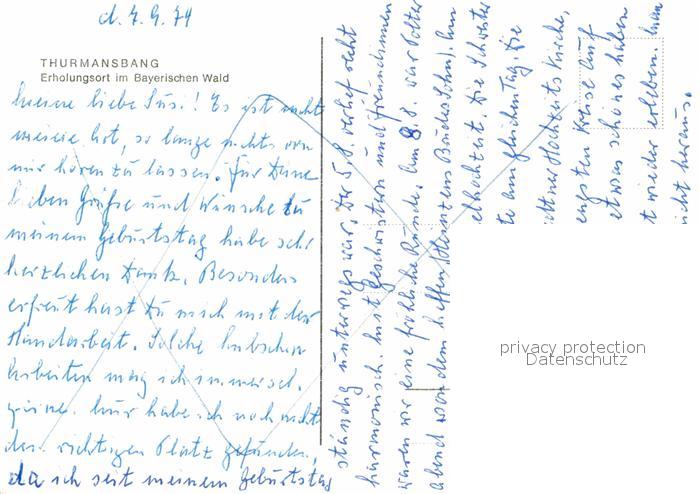 d. 7. 9. 79
THURMANSBANG
Erholungsort im Bayerischen Wald
Meine liebe Susi! Es ist nicht
meine Art, so lange nichts von
mir hören zu lassen. Für Deine
lieben Grüße und Wünsche zu
meinem Geburtstag habe sehr
herzlichen Dank. Besonders
erfreut hast Du mich mit der
Handarbeit. Solche hübschen
Arbeiten mag ich immer sch.
gerne. Nur habe ich noch nicht
den richtigen Platz gefunden,
da ich seit meinem Geburtstag
ständig unterwegs war. Der 5.8. verlief recht
harmonisch. Mit Geschwistern und Freundinnen
waren wir eine fröhliche Runde. Am 8.8. war Polter
abend von dem Neffen
elhochzeit. Die Schwester
te am gleichen Tag. Die
Hochzeits Kirche,
engsten Kreise auf
etwas schönes haben
t wieder erleben. Man
nicht heraus.
privacy protection
Datenschutz